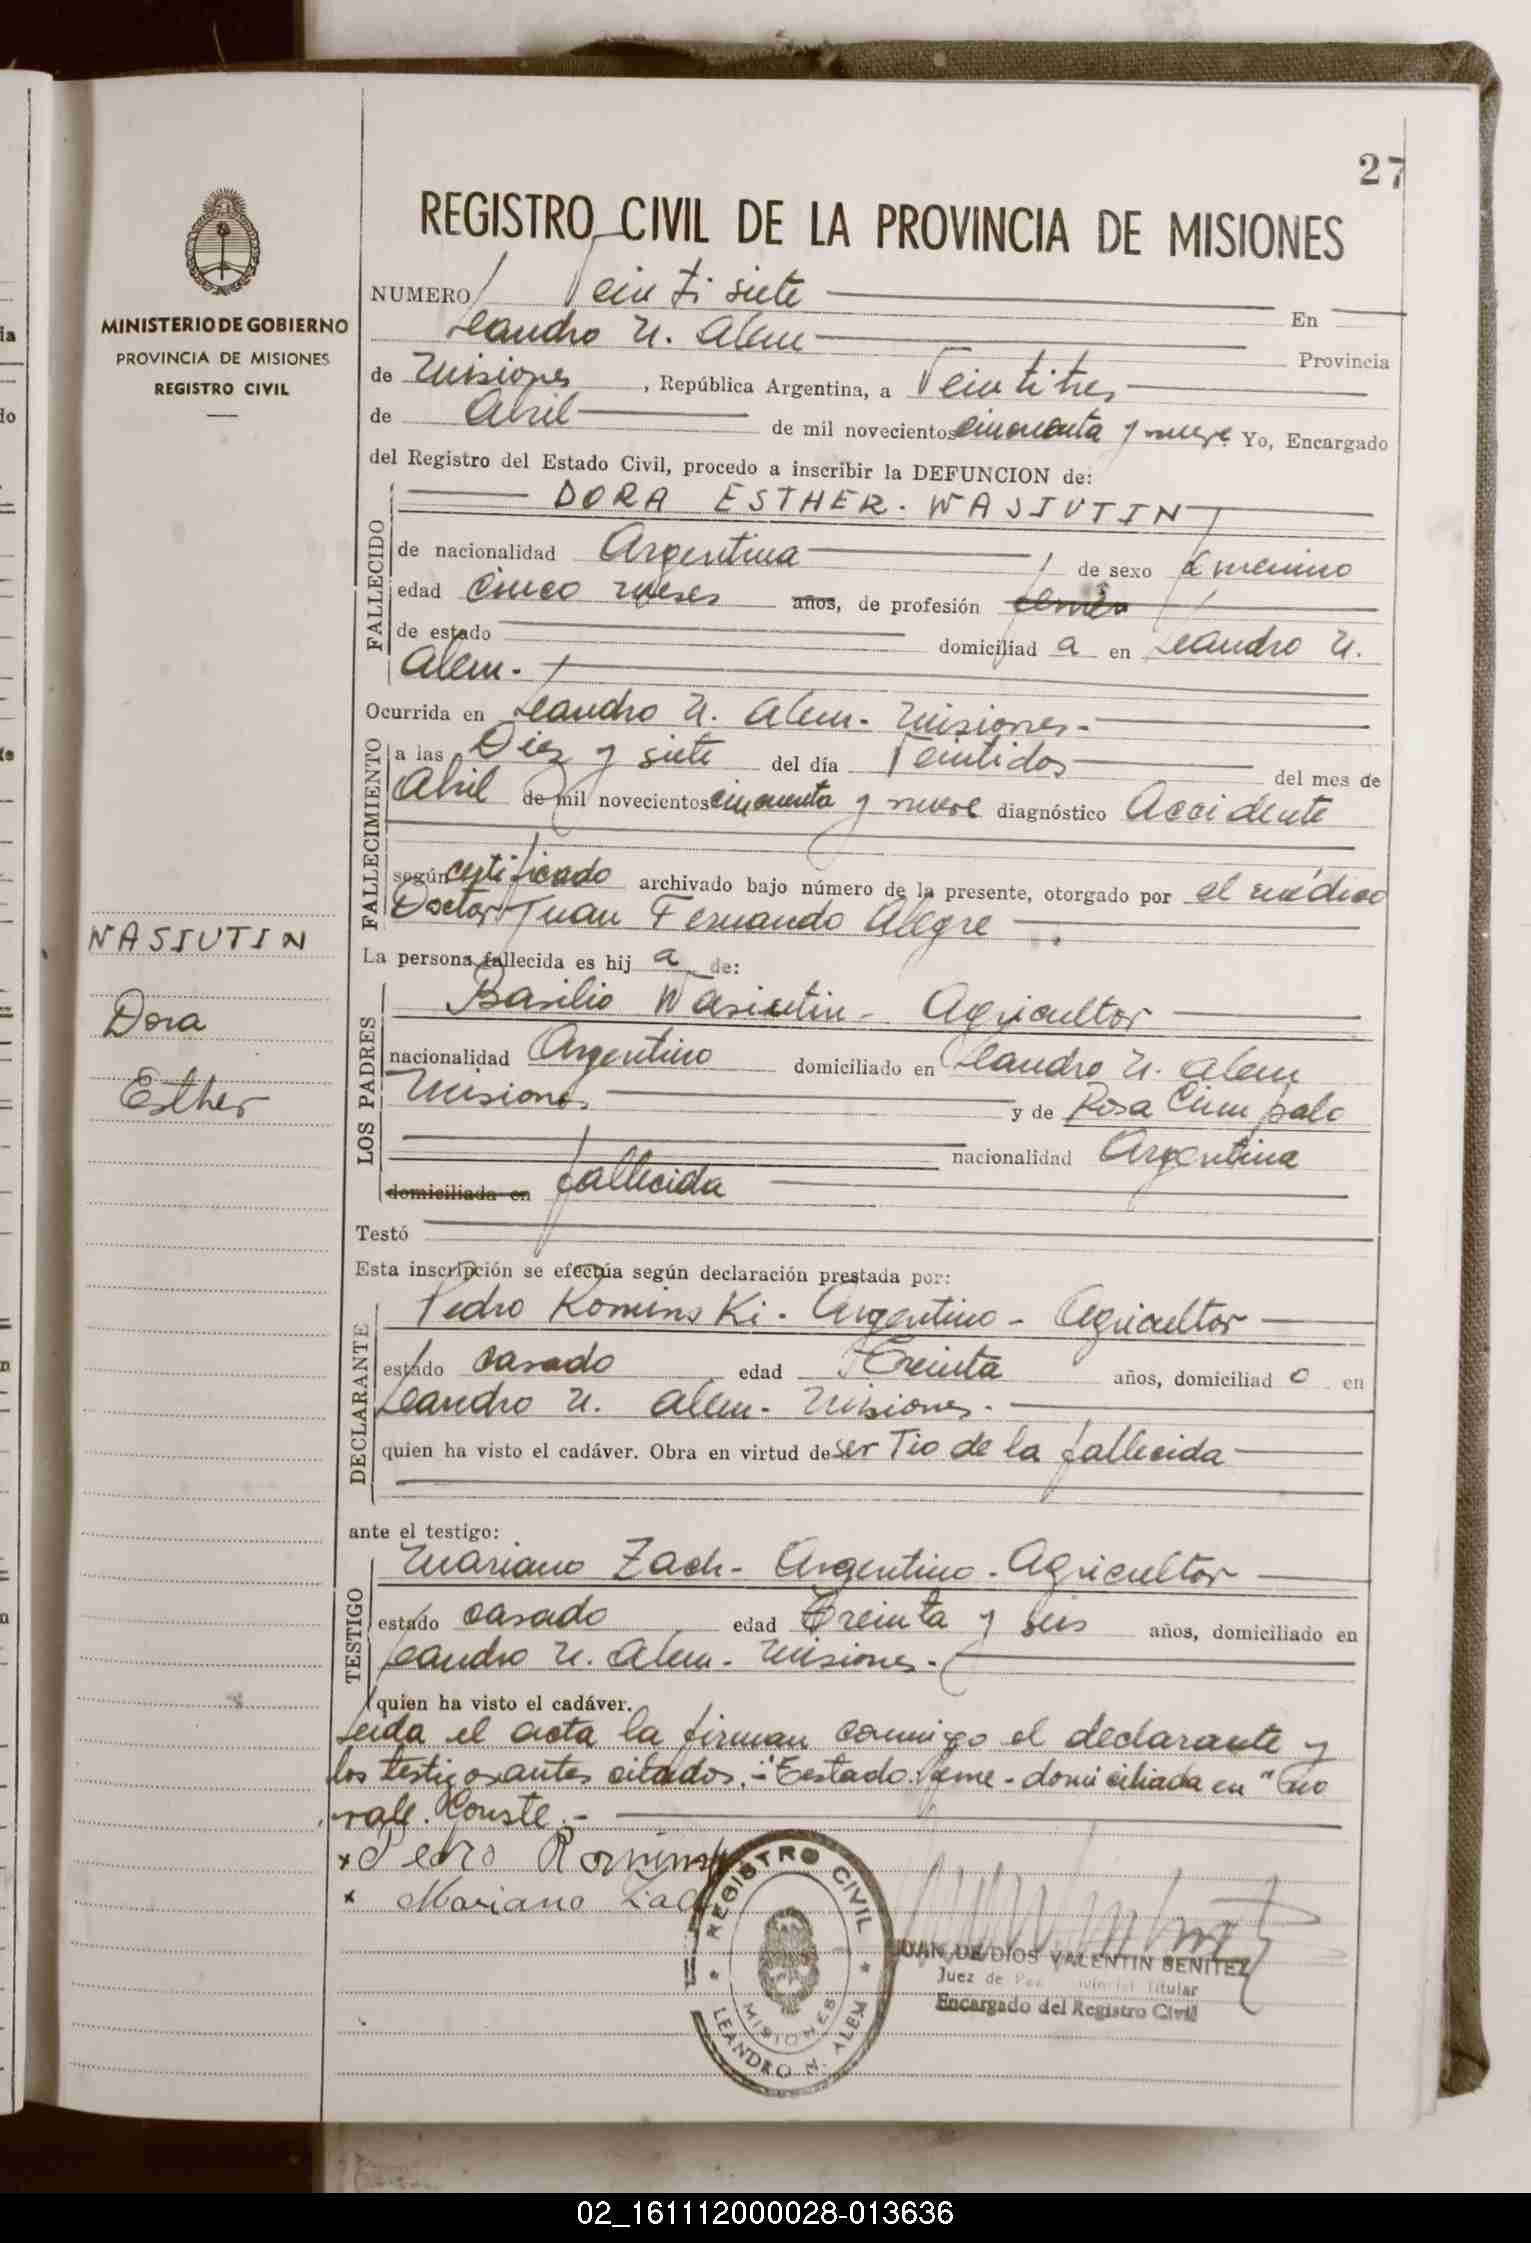 27
REGISTRO CIVIL DE LA PROVINCIA DE MISIONES
MINISTERIO DE GOBIERNO
PROVINCIA DE MISIONES
REGISTRO CIVIL
NUMERO Veintisiete En
Leandro N. Alem Provincia
de Misiones, República Argentina, a Veintitres
de Abril de mil novecientos cincuenta y nueve Yo, Encargado
del Registro del Estado Civil, procedo a inscribir la DEFUNCION de:
DORA ESTHER. WASIUTIN
FALLECIDO
de nacionalidad Argentina, de sexo femenino
edad Cinco meses años, de profesión
de estado domiciliad a en Leandro N.
Alem.-
Ocurrida en Leandro N. Alem- Misiones-
FALLECIMIENTO
a las Diez y siete del día Veintidos del mes de
Abril de mil novecientos cincuenta y nueve diagnóstico Accidente
según certificado archivado bajo número de la presente, otorgado por el médico
Doctor Juan Fernando Alegre
WASIUTIN
Dora
Esther
La persona fallecida es hij a de:
LOS PADRES
Basilio Wasiutin- Agricultor
nacionalidad Argentino domiciliado en Leandro N. Alem
Misiones y de Rosa
nacionalidad Argentina
domiciliada en fallecida
Testó
Esta inscripción se efectúa según declaración prestada por:
DECLARANTE
Pedro Rominski- Argentino- Agricultor
estado casado edad Treinta años, domiciliad o en
Leandro N. Alem- Misiones.-
quien ha visto el cadáver. Obra en virtud de ser Tio de la fallecida
ante el testigo:
TESTIGO
Mariano Zach- Argentino- Agricultor
estado casado edad Treinta y seis años, domiciliado en
Leandro N. Alem- Misiones.-
quien ha visto el cadáver.
Leida el acta la firman conmigo el declarante y
los testigos antes citados.- "Testado: feme- domiciliada en" no
vale. Conste.-
x Pedro Rominski
x Mariano Zach
REGISTRO CIVIL
MISIONES
LEANDRO N. ALEM
JUAN DE DIOS VALENTIN BENITEZ
Juez de Paz Titular
Encargado del Registro Civil
02_161112000028-013636